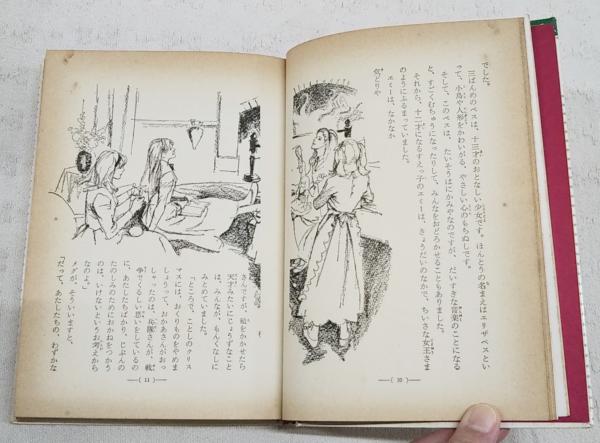 でした。
三ばんめのベスは、十三才のおとなしい少女です。ほんとうの名まえはエリザベスとい
って、小鳥や人形をかわいがる、やさしい心のもちぬしです。
そして、このベスは、たいそうはにかみやなのですが、だいすきな音楽のことになる
と、すごくむちゅうになったりして、みんなをおどろかせることもありました。
それから、十二才になるすえっ子のエミーは、きょうだいのなかで、ちいさな女王さま
のようにふるまっていました。
エミーは、なかなか
気どりや
—( 10 )—
さんですが、絵をかかせたら
天才みたいにじょうずなこと
は、みんなが、もんくなしに
みとめていました。
「ところで、ことしのクリス
マスには、おくりものをやめま
しょうって、おかあさんがおっ
しゃったのは、兵隊さんが、戦
争でくるしい思いをしているの
に、あたしたちばかり、じぶんの
たのしみのためにおかねをつかう
のは、いけないというお考えから
なのよ。」
メグが、そういいますと、
「だって、あたしたちの、わずかな
—( 11 )—